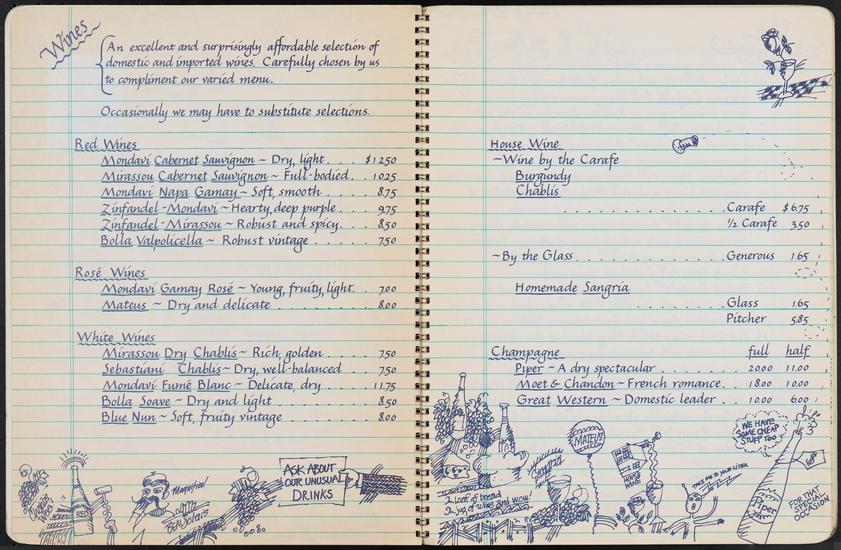 Wines
An excellent and surprisingly affordable selection of
domestic and imported wines. Carefully chosen by us
to compliment our varied menu.
Occasionally we may have to substitute selections.
Red Wines
Mondavi Cabernet Sauvignon ~ Dry, light . . . . $12.50
Mirassou Cabernet Sauvignon ~ Full-bodied . . . 10.25
Mondavi Napa Gamay ~ Soft, smooth . . . . . 8.75
Zinfandel - Mondavi ~ Hearty, deep purple . . . 9.75
Zinfandel - Mirassou ~ Robust and spicy . . . . 8.50
Bolla Valpolicella ~ Robust vintage . . . . . . 7.50
Rosé Wines
Mondavi Gamay Rosé ~ Young, fruity, light . . . 7.00
Mateus ~ Dry and delicate . . . . . . . . 8.00
White Wines
Mirassou Dry Chablis ~ Rich, golden . . . . . 7.50
Sebastiani Chablis ~ Dry, well-balanced . . . . 7.50
Mondavi Fumé Blanc ~ Delicate, dry . . . . 11.75
Bolla Soave ~ Dry and light . . . . . . . 8.50
Blue Nun ~ Soft, fruity vintage . . . . . . 8.00
Magnifico!
ASK ABOUT
OUR UNUSUAL
DRINKS
House Wine
~ Wine by the Carafe
Burgundy
Chablis
. . . . . . . . . . . . Carafe $6.75
½ Carafe 3.50
~ By the Glass . . . . . . . . . . . . Generous 1.65
Homemade Sangria
. . . . . . . Glass 1.65
Pitcher 5.85
Champagne full half
Piper ~ A dry spectacular . . . . . . . . 20.00 11.00
Moet & Chandon ~ French romance . . . 18.00 10.00
Great Western ~ Domestic leader . . . 10.00 6.00
MATEUS
WE HAVE
SOME CHEAP
STUFF TOO
TAKE ME TO YOUR LITER
HOUSE
WINE
Piper
FOR THAT
SPECIAL
OCCASION